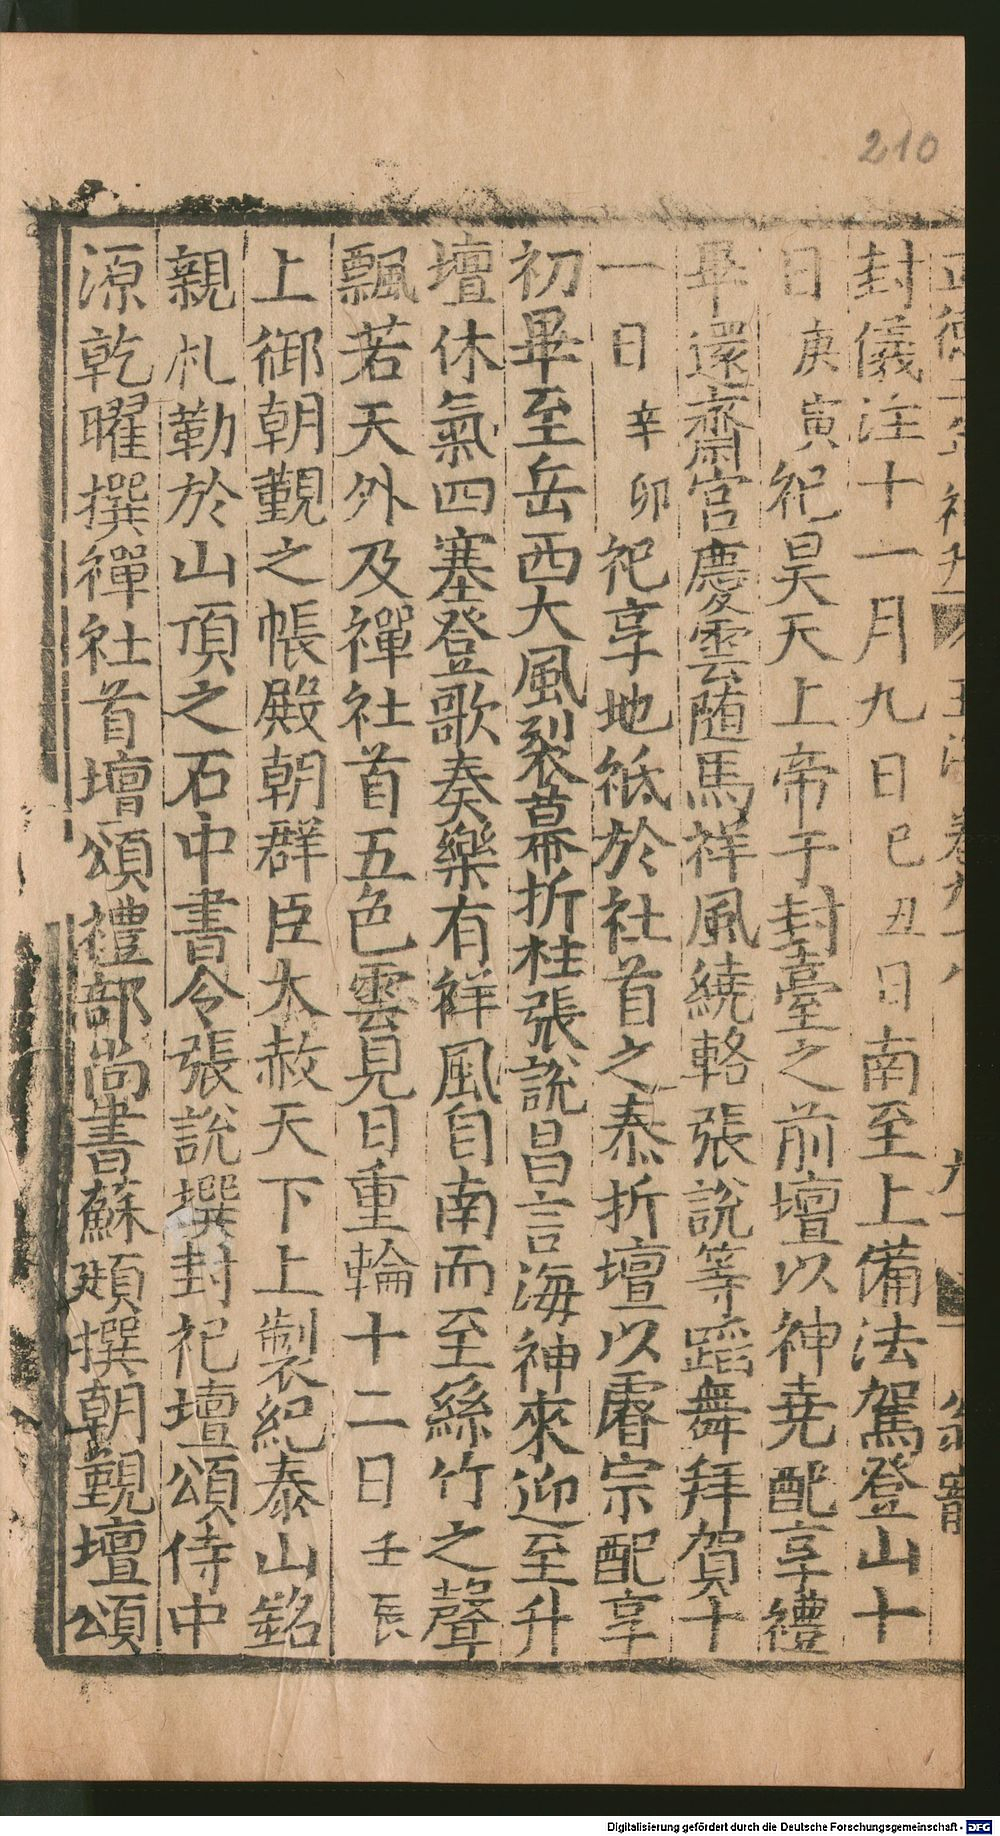 210
正德二年 補刊 玉海卷九十八 九十一
封儀注十一月九日己丑日南至上備法駕登山十
日庚寅祀昊天上帝于封臺之前壇以神堯配享禮
畢還齋宮慶雲隨馬祥風繞輅張說等蹈舞拜賀十
一日辛卯祀享地祗於社首之泰折壇以睿宗配享
初畢至岳西大風裂幕折柱張說昌言海神來迎至升
壇休氣四塞登歌奏樂有祥風自南而至絲竹之聲
飄若天外及禪社首五色雲見日重輪十二日壬辰
上御朝覲之帳殿朝群臣大赦天下上製紀泰山銘
親札勒於山頂之石中書令張說撰封祀壇頌侍中
源乾曜撰禪社首壇頌禮部尚書蘇頲撰朝覲壇頌
Digitalisierung gefördert durch die Deutsche Forschungsgemeinschaft - DFG